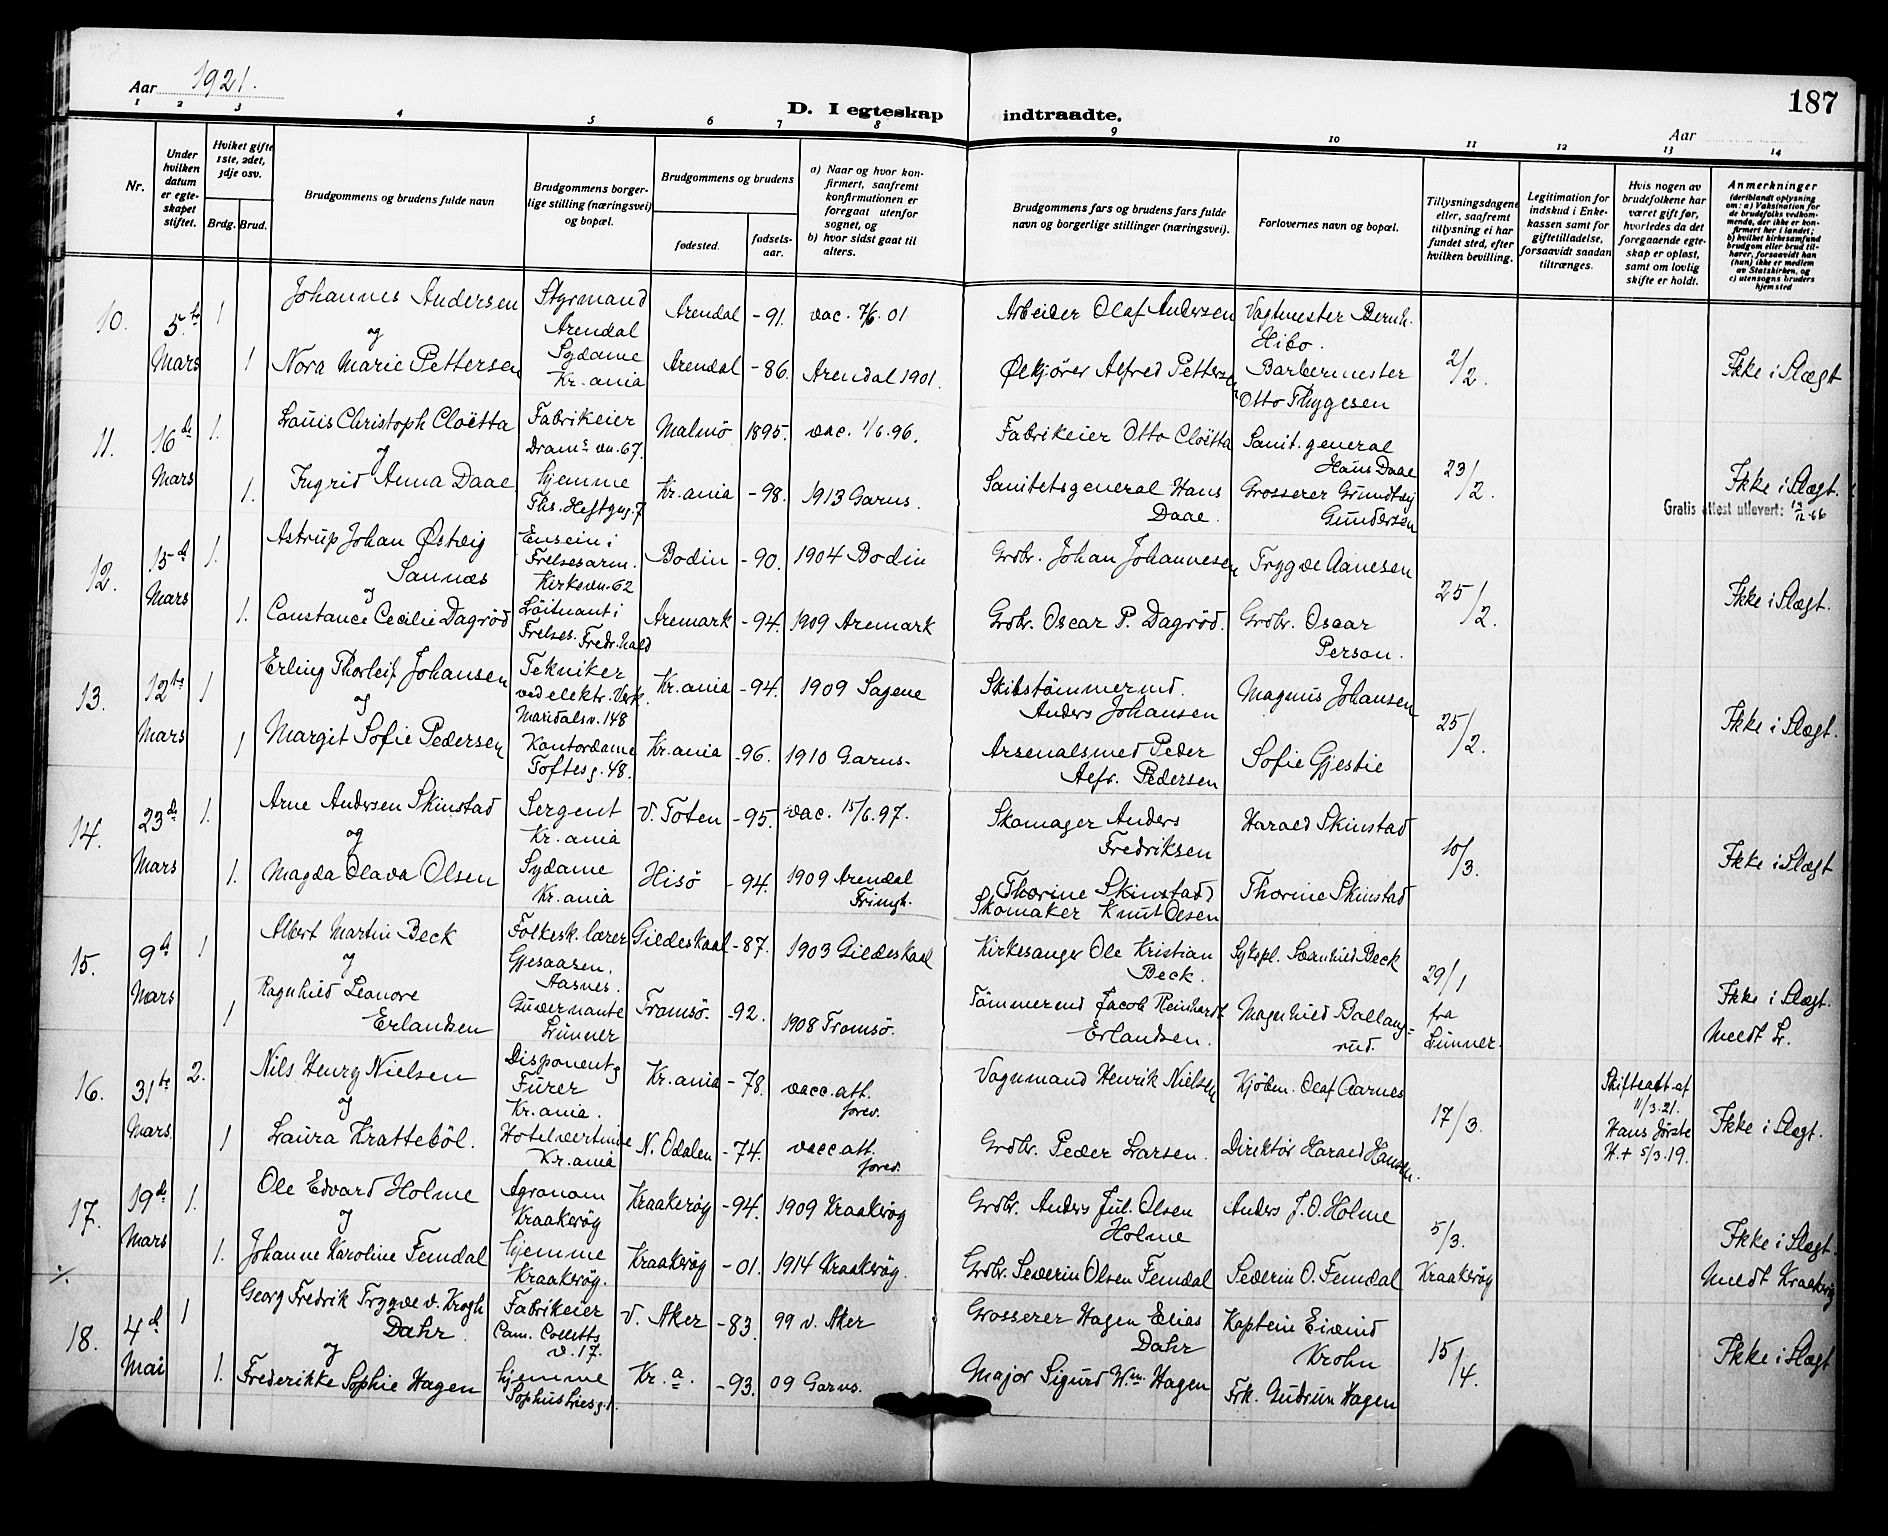 Aar 1921.
D. I egteskap indtraadte.
187
Aar
1 2 3 4 5 6 7 8 9 10 11 12 13 14
Nr.
Under hvilken datum er egteskapet stiftet.
Hvilket gifte 1ste, 2det, 3dje osv.
Brdg. Brud.
Brudgommens og brudens fulde navn
Brudgommens borgerlige stilling (næringsvei) og bopæl.
Brudgommens og brudens
fødested.
fødselsaar.
a) Naar og hvor konfirmert, saafremt konfirmationen er foregaat utenfor sognet, og
b) hvor sidst gaat til alters.
Brudgommens fars og brudens fars fulde navn og borgerlige stillinger (næringsvei).
Forlovernes navn og bopæl.
Tillysningsdagene eller, saafremt tillysning ei har fundet sted, efter hvilken bevilling.
Legitimation for indskud i Enkekassen samt for giftetilladelse, forsaavidt saadan tiltrænges.
Hvis nogen av brudefolkene har været gift før, hvorledes da det foregaaende egteskap er opløst, samt om lovlig skifte er holdt.
Anmerkninger (deriblandt oplysning om: a) Vaksination for de brudefolks vedkommende, der ikke er konfirmert her i landet; b) hvilket kirkesamfund brudgom eller brud tilhører, forsaavidt han (hun) ikke er medlem av Statskirken, og c) utensogns bruders hjemsted
10. 5te Mars 1 Johannes Andersen Styrmand Arendal Arendal -91. vac. 7/6 01 Arbeider Olaf Andersen Vagtmester Bernh. Hibo. 2/2. Ikke i Slægt
og
1 Nora Marie Pettersen Sydame Kr.ania Arendal -86. Arendal 1901. Ølkjører Alfred Pettersen Barbermester Otto Thygesen
11. 16de Mars 1. Louis Christoph Cloëtta Fabrikeier Drams.vn. 67. Malmö 1895. vac. 1/6.96. Fabrikeier Otto Cloëtta Sanit.general Hans Daae 23/2. Ikke i Slægt.
og
1. Ingrid Anna Daae hjemme Ths. Heftyesg. 7 Kr.ania -98. 1913 Garns. Sanitetsgeneral Hans Daae. Grosserer Grundtvig Gundersen Gratis attest utlevert: 12/12.66
12. 15de Mars 1. Astrup Johan Østvig Sannæs Ensein i Frelsesarm. Kirkevn. 62 Bodin -90. 1904 Bodin Grdbr. Johan Johannesen Trygve Aanesen 25/2. Ikke i Slægt.
og
1. Constance Cecilie Dagrød Løitnant i Frelses. Fredr.hald Aremark -94. 1909 Aremark Grdbr. Oscar P. Dagrød. Grdbr. Oscar Person.
13. 12te Mars 1 Erling Thorleif Johansen Tekniker ved elektr. Verk. Maridalsv. 148 Kr.ania -94. 1909 Sagene Skibstømmermd. Anders Johansen Magnus Johansen 25/2. Ikke i Slægt.
og
1 Margit Sofie Pedersen Kontordame Toftesg. 48. Kr.ania -96. 1910 Garns. Arsenalsmed Peder Alfr. Pedersen Sofie Gjestie
14. 23de Mars 1. Arne Andersen Skinstad Sergent Kr.ania V. Toten -95. vac. 15/6.97. Skomager Anders Fredriksen Harald Skinstad 10/3. Ikke i Slægt
og
1. Magda Olava Olsen Sydame Kr.ania Hisö -94. 1909 Arendal Trinigh. Thorine Skinstad Skomaker Knut Olsen Thorine Skinstad
15. 9de Mars 1 Albert Martin Beck Folkesk.lærer Gjesaasen. Aasnes. Gildeskaal -87. 1903 Gildeskaal Kirkesanger Ole Kristian Beck. Sykepl. Svanhild Beck 29/1 fra Lunner. Ikke i Slægt. Meldt L.
og
1 Ragnhild Leonore Erlandsen Guvernante Lunner Tromsö. -92. 1908 Tromsö. Tömmermd Jacob Reinhardt Erlandsen. Magnhild Ballangrud.
16. 31te Mars 2. Nils Henry Nielsen Disponent Furer Kr.ania. Kr.ania -78. vacc.att. forev. Vognmand Henrik Nielsen Kjöbm. Olaf Aarnes 17/3. Skifteatt. af 11/3.21. Hans første H. + 5/3.19. Ikke i Slægt.
og
1 Laura Krattebøl. Hotelvertinde Kr.ania N. Odalen -74. vacc att. forev. Grdbr. Peder Larsen. Direktör Harald Hansen.
17. 19de Mars 1. Ole Edvard Holme Agronom Kraakerøy Kraakerøy -94. 1909 Kraakerøy Grdbr. Anders Jul. Olsen Holme Anders J. O. Holme 5/3. Kraakerøy Ikke i Slægt. Meldt Kraakerøy
og
1. Johanne Karoline Femdal hjemme Kraakerøy. Kraakerøy -01. 1914 Kraakerøy. Grdbr. Severin Olsen Femdal Severin O. Femdal
./.
18. 4de Mai 1 Georg Fredrik Trygve v. Krogh Dahr Fabrikeier Cam. Colletts v. 17. V. Aker -83. 99 v. Aker Grosserer Hagen Elias Dahr Kaptein Eivind Krohn 15/4. Ikke i Slægt
og
1. Frederikke Sophie Hagen hjemme Sophus Lies g. 1. Kr.a. -93. 09 Garns. Major Sigurd Wm. Hagen Frk. Gudrun Hagen